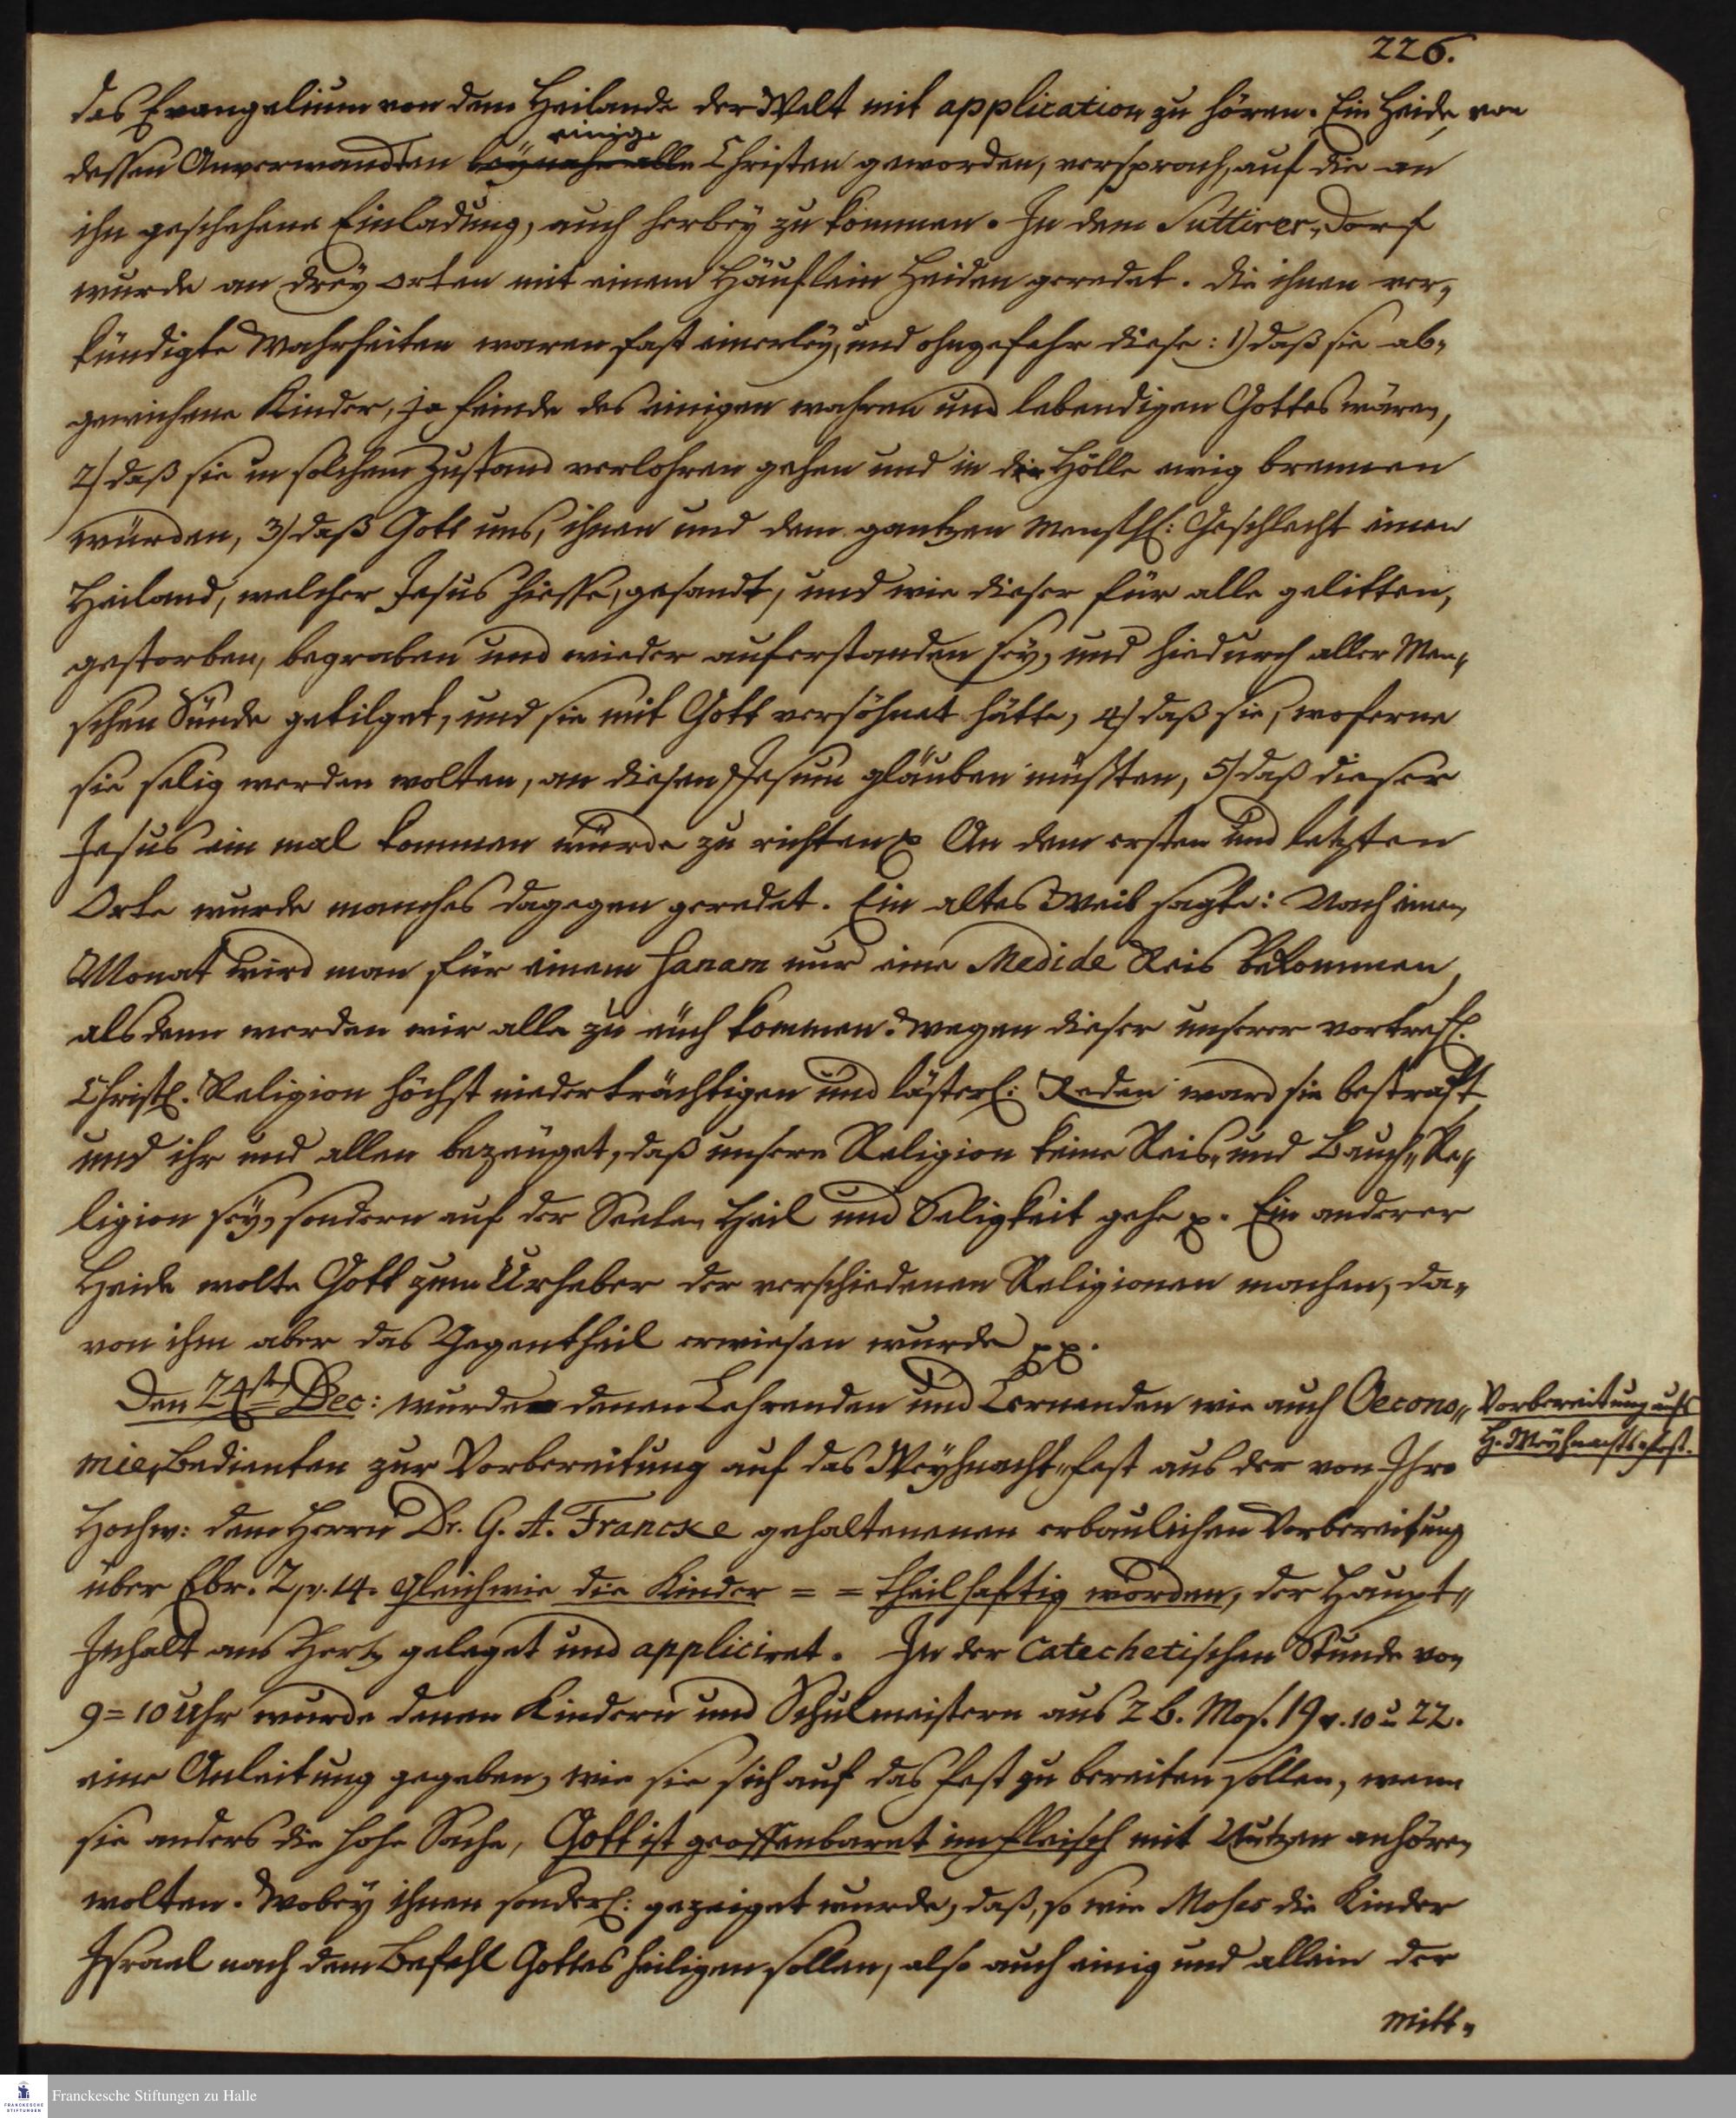 226.
das Evangelium von dem Heilande der Welt mit application zu hören. Ein Heide, von
einige
dessen Anverwandten beÿnahe alle Christen geworden, versprach, auf die an
ihn geschehene Einladung, auch herbeÿ zu kommen. In dem Suttirer-Dorf
wurde an dreÿ Orten mit einem Häuflein Heiden geredet. Die ihnen ver-
kündigte Wahrheiten waren fast einerleÿ, und ohngefehr diese: 1) daß sie ab-
gewichene Kinder, ja Feinde des einigen wahren und lebendigen Gottes wären,
2) daß sie in solchem Zustand verlohren gehen und in der Hölle ewig brennen
würden, 3) daß Gott uns, ihnen und dem gantzen Menschl: Geschlecht einen
Heiland, welcher Jesus hiesse, gesandt, und wie dieser für alle gelitten,
gestorben, begraben und wieder auferstanden seÿ, und hiedurch aller Men-
schen Sünde getilget, und sie mit Gott versöhnet hätte, 4) daß sie, woferne
sie selig werden wolten, an diesen Jesum gläuben müßten, 5) daß dieser
Jesus ein mal kommen würde zu richten p. An dem ersten und letzten
Orte wurde manches dagegen geredet. Ein altes Weib sagte: Nach einen
Monat wird man für einem Fanam nur eine Medide Reis bekommen,
alsdenn werden wir alle zu euch kommen. Wegen dieser unserer vortrefl.
Christl. Religion höchst niederträchtigen und lästerl: Reden ward sie bestraft,
und ihr und allen bezeuget, daß unsere Religion keine Reis- und Bauch-Re-
ligion seÿ, sondern auf der Seelen Heil und Seligkeit gehe p. Ein anderer
Heide wolte Gott zum Urheber der verschiedenen Religionen machen, da-
von ihm aber das Gegentheil erwiesen wurde pp.
Den 24st. Dec: wurde denen Lehrenden und Lernenden wie auch Oecono-
Vorbereitung aufs
H. Weÿhnachts-Fest.
mie-Bedienten zur Vorbereitung auf das Weÿhnacht-Fest aus der von Ihro
Hochw: dem Herrn Dr. G. A. Francke gehaltenenen erbaulichen Vorbereitung
über Ebr. 2, v. 14. Gleichwie die Kinder = = theilhaftig worden, der Haupt-
Inhalt ans Hertz geleget und appliciret. In der Catechetischen Stunde von
9=10 Uhr wurde denen Kindern und Schulmeistern aus 2 B. Mos. 19 v. 10 u. 22.
eine Anleitung gegeben, wie sie sich auf das Fest zu bereiten sollen, wenn
sie anders die hohe Sache, Gott ist geoffenbaret im Fleisch mit Nutzen anhören
wolten. Wobeÿ ihnen sonderl: gezeiget wurde, daß, so wie Moses die Kinder
Israel nach dem Befehl Gottes heiligen sollen, also auch einig und allein der
Mitt-
FRANCKESCHE STIFTUNGEN
Franckesche Stiftungen zu Halle